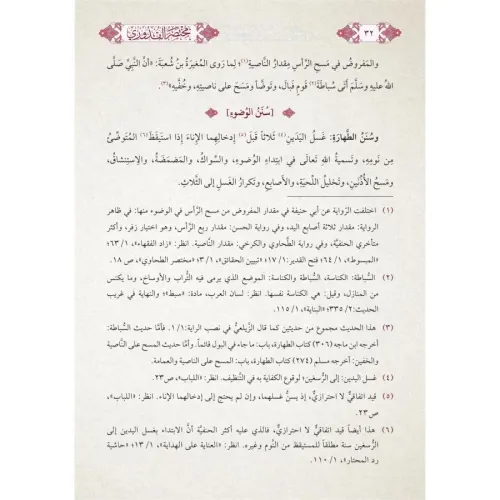 ٣٢
مختصر القدوري
والمفروضُ في مسحِ الرَّأسِ مِقدارُ النَّاصيةِ(١)؛ لِما رَوى المُغيرَةُ بنُ شُعبَةَ: «أنَّ النَّبيَّ صَلَّى
اللهُ عليهِ وسَلَّمَ أتَى سُباطَةَ(٢) قَومٍ فَبالَ، وتَوضَّأَ ومَسحَ على ناصيتِهِ، وخُفَّيهِ»(٣).
[سُنَنُ الوُضوءِ]
وسُنَنُ الطَّهارَةِ: غَسلُ اليَدَينِ(٤) ثَلاثاً قَبلَ(٥) إدخالِهِما الإناءَ إذا استَيقَظَ(٦) المُتَوَضِّئُ
مِن نَومِهِ، وتَسميةُ اللهِ تَعالَى في ابتِداءِ الوُضوءِ، والسِّواكُ، والمَضمَضَةُ، والاِستِنشاقُ،
ومَسحُ الأُذُنَينِ، وتَخليلُ اللِّحيَةِ، والأصابعِ، وتَكرارُ الغَسلِ إلى الثَّلاثِ.
(١) اختلفت الرّواية عن أبي حنيفة في مقدار المفروض من مسح الرأس في الوضوء منها: في ظاهر
الرواية: مقدار ثلاثة أصابع اليد، وفي رواية الحسن: مقدار ربع الرأس، وهو اختيار زفر، وأكثر
متأخري الحنفيّة، وفي رواية الطَّحاوي والكرخي: مقدار النَّاصية. انظر: «زاد الفقهاء»، ١/ ٦٣؛
«المبسوط»، ١/ ٦٤؛ فتح القدير: ١/ ١٧؛ «تبيين الحقائق»، ١/ ٣؛ «مختصر الطحاوي»، ص ١٨.
(٢) السُّباطة: الكناسة، السُّباطة والكناسة: الموضع الذي يرمى فيه التُّراب والأوساخ، وما يكنس
من المنازل، وقيل: هي الكناسة نفسها. انظر: لسان العرب، مادة: «سبط»؛ والنهاية في غريب
الحديث: ٢/ ٣٣٥؛ «البناية»، ١/ ١١٥.
(٣) هذا الحديث مجموع من حديثين كما قال الزّيلعيُّ في نصب الراية: ١/ ١. فأمّا حديث السُّباطة:
أخرجه ابن ماجه (٣٠٦) كتاب الطهارة، باب: ما جاء في البول قائماً. وأمّا حديث المسح على النَّاصية
والخفين: أخرجه مسلم (٢٧٤) كتاب الطهارة، باب: المسح على الناصية والعمامة.
(٤) غسل اليدين: إلى الرُّسغين؛ لوقوع الكفاية به في التَّنظيف. انظر: «اللباب»، ص٢٣.
(٥) قيد اتفاقيٌّ لا احترازيٌّ، إذ يسنُّ غسلهما، وإن لم يحتج إلى إدخالهما الإناء. انظر: «اللباب»،
ص٢٣.
(٦) هذا أيضاً قيد اتفاقيٌّ لا احترازيٌّ، فالذي عليه أكثر الحنفيَّة أنَّ الابتداء بغسل اليدين إلى
الرُّسغين سنة مطلقاً للمستيقظ من النَّوم وغيره. انظر: «العناية على الهداية»، ١/ ١٣؛ «حاشية
رد المحتار»، ١/ ١١٠.